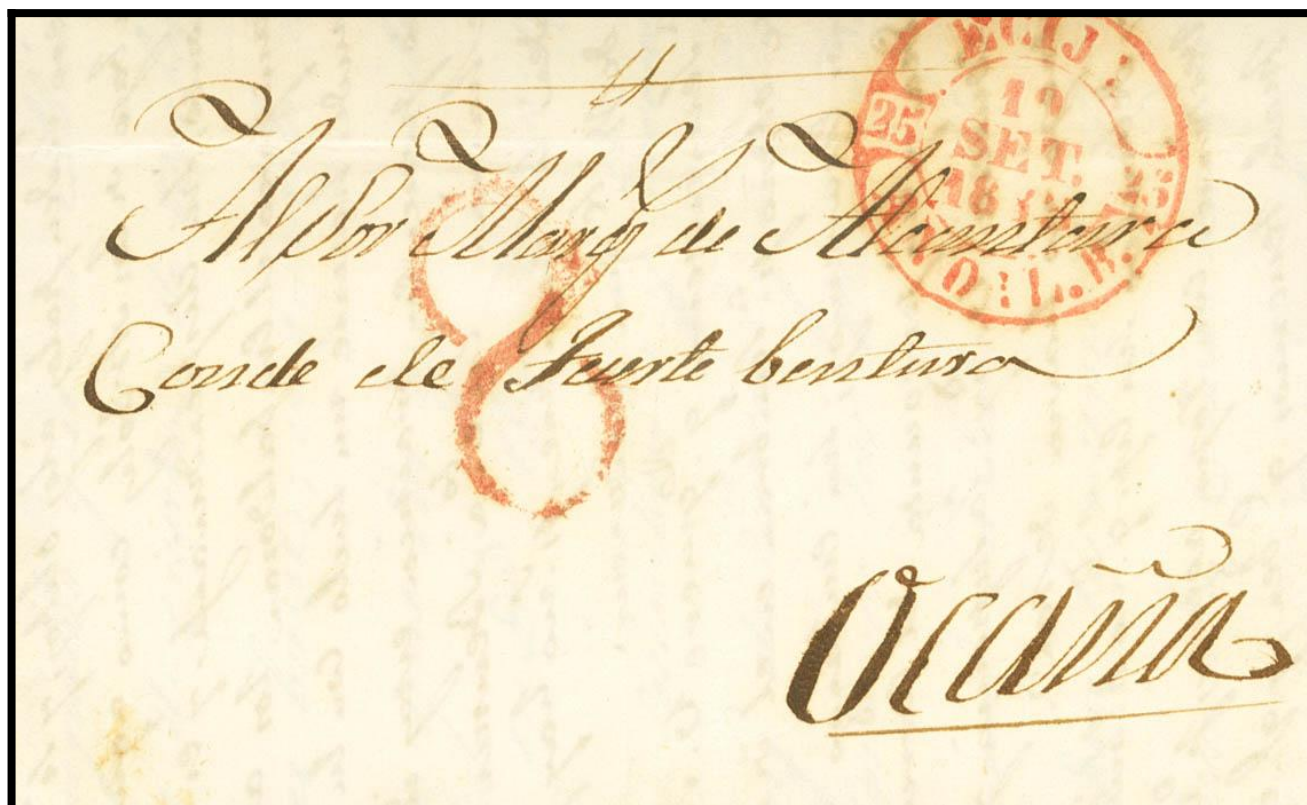 25
SET.
8
Al Sor Marqs de Alcantara
Conde de Fuerte bentura
Ocaña